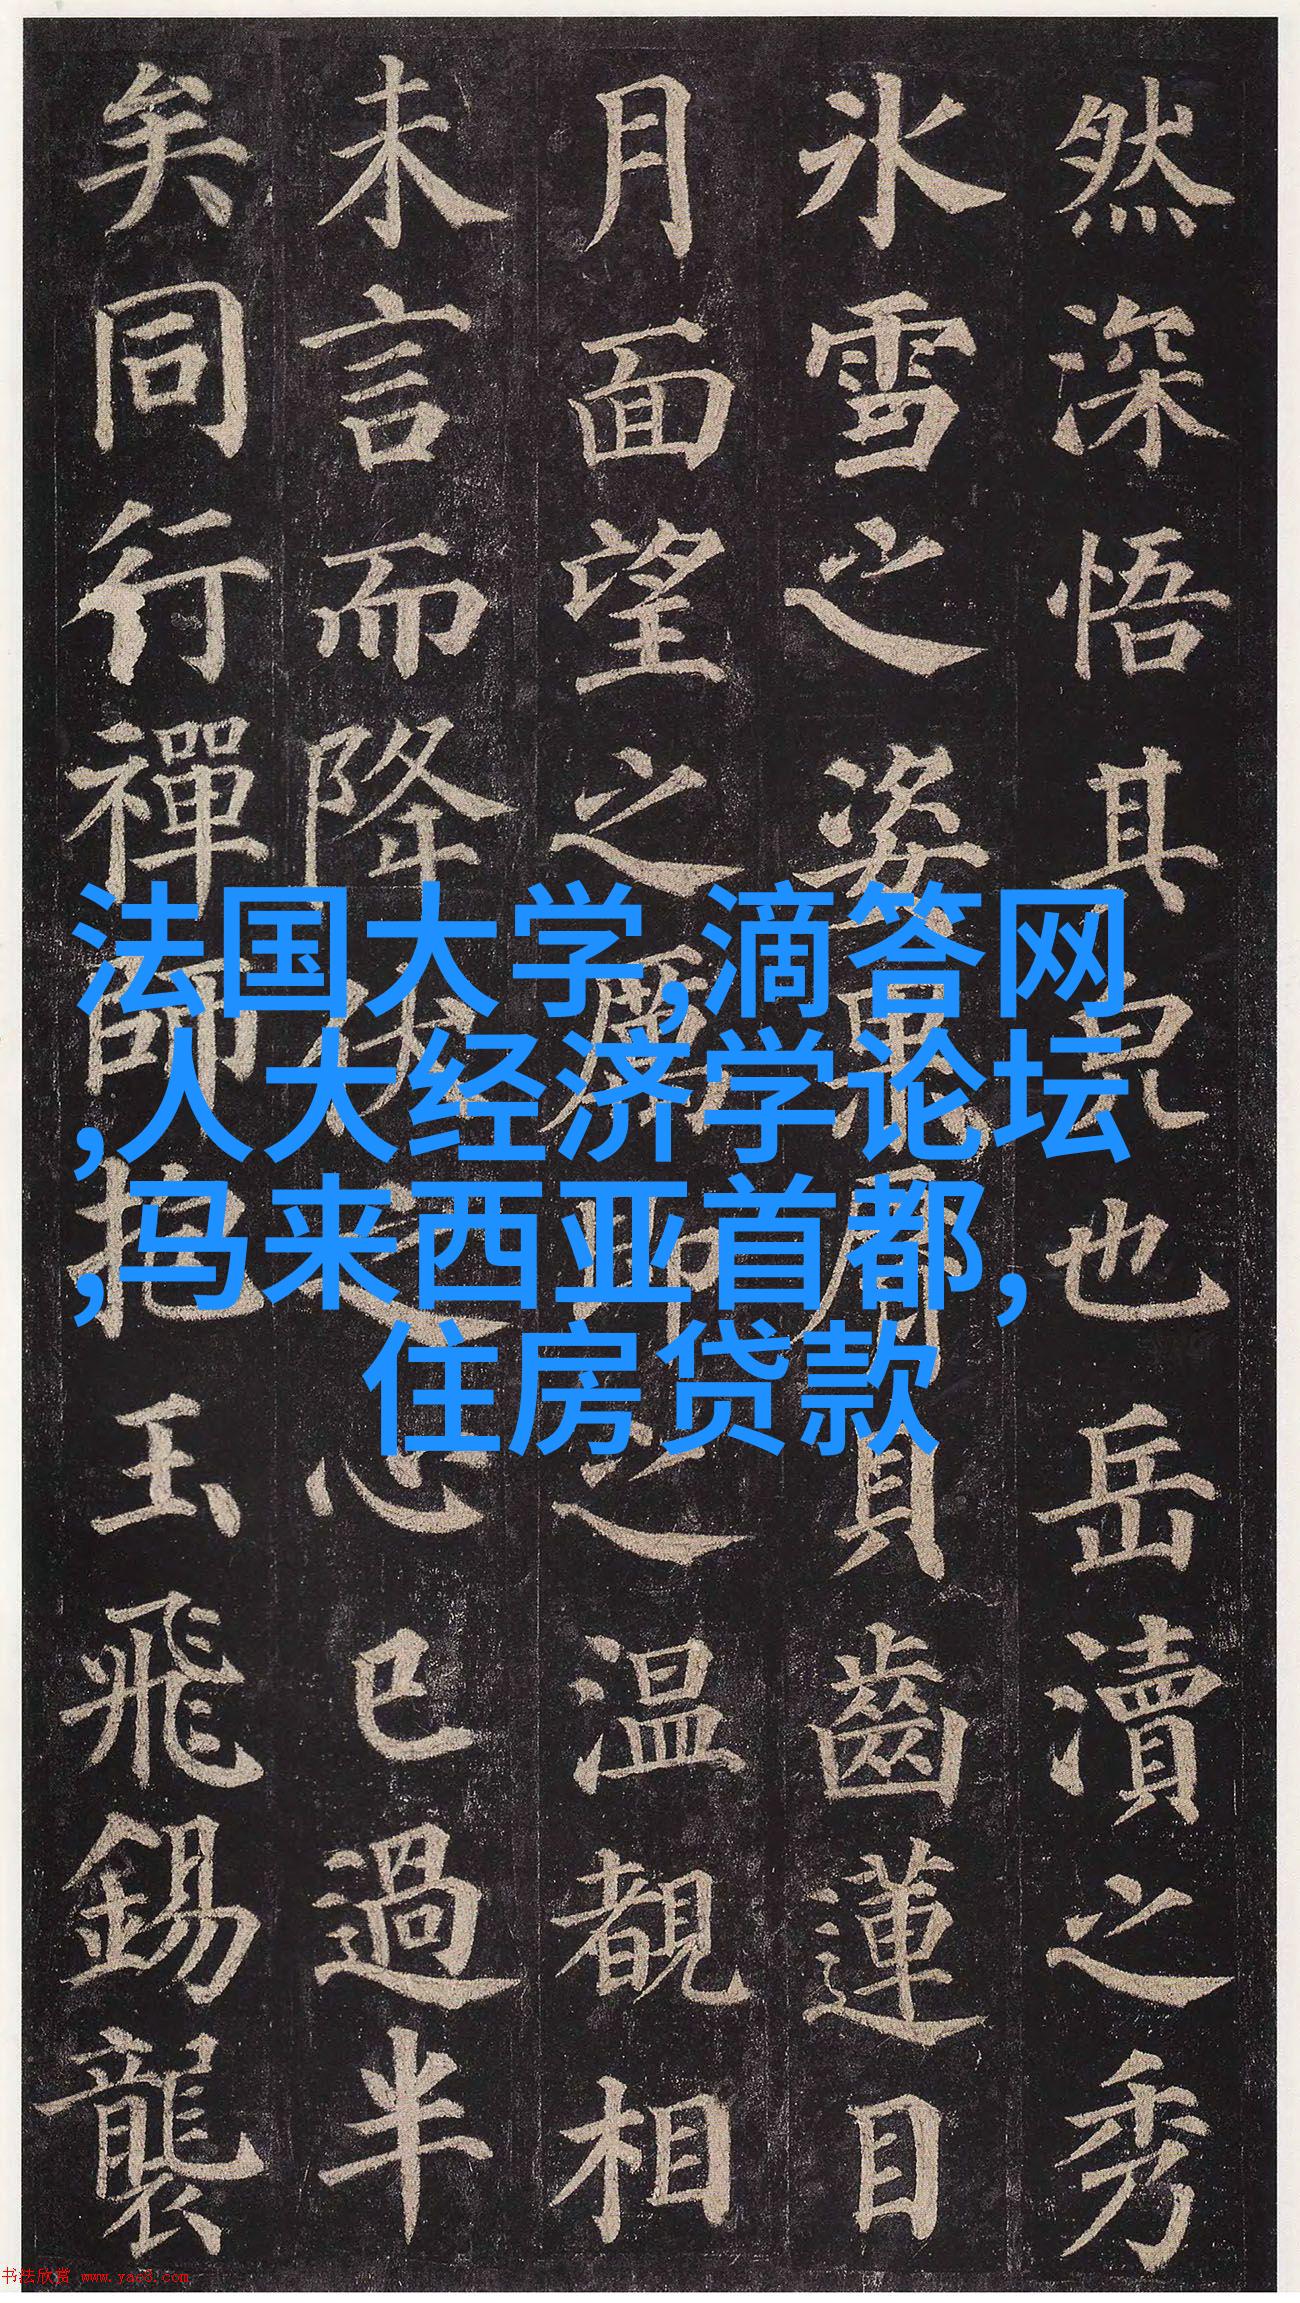 然深悟其也岳瀆之秀
氷雪之姿脣貝齒蓮目
月面望之厲即之温覩相
未言而降伏之心已過半
矣同行禪師抱玉飛錫襲
法国大学,滴答网
,人大经济学论坛
,马来西亚首都,
住房贷款
书法欣赏 www.yac8.com